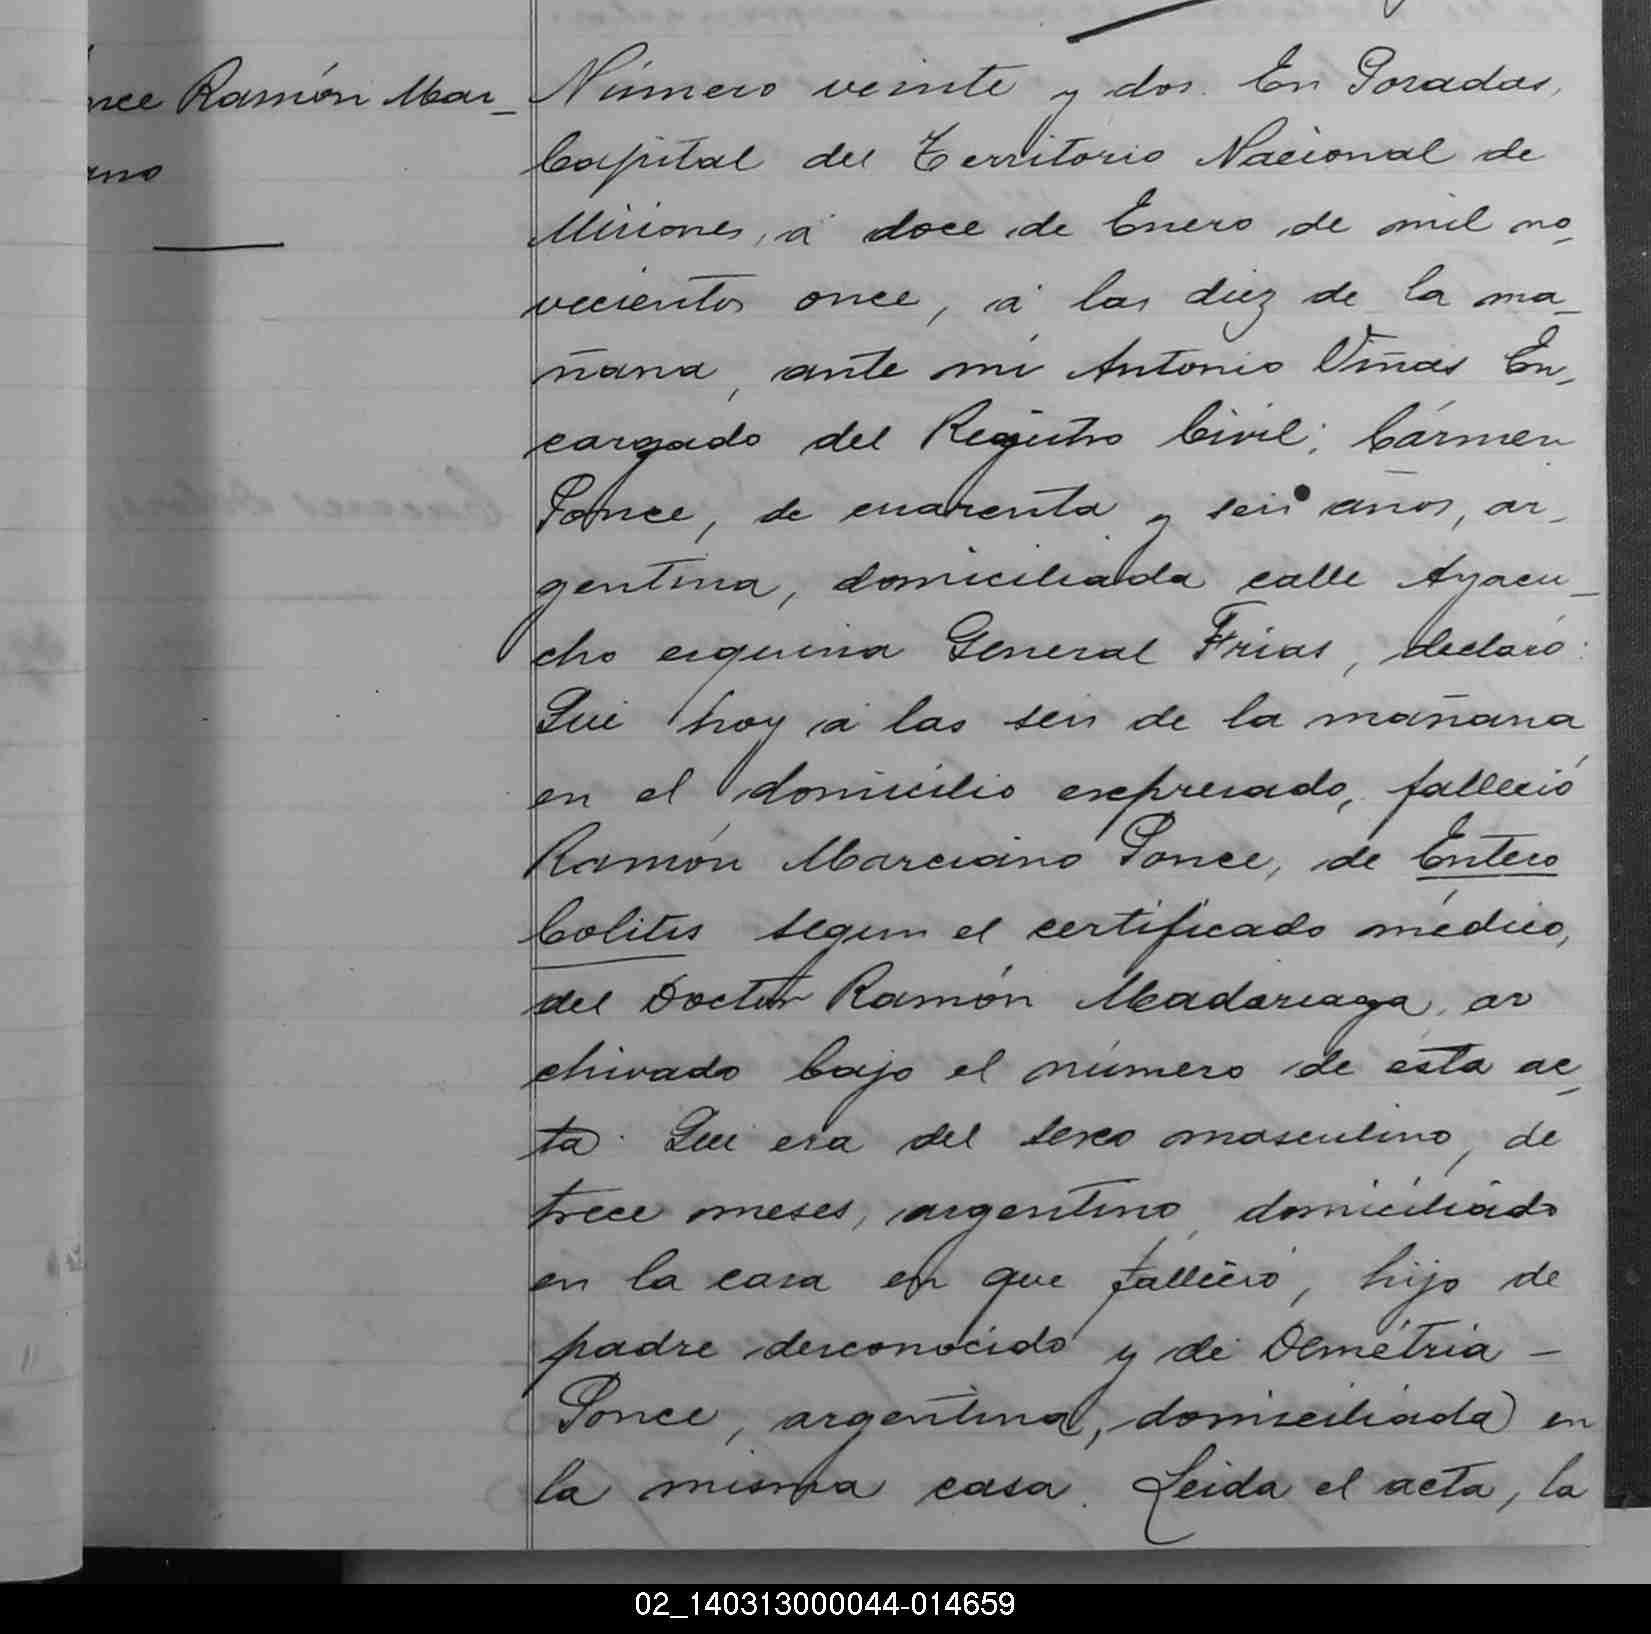 nce Ramón Mar-
ano
Número veinte y dos. En Posadas,
Capital del Territorio Nacional de
Misiones, á doce de Enero de mil no-
vecientos once, á las diez de la ma-
ñana, ante mi Antonio Viñas En-
cargado del Registro Civil; Cármen
Ponce, de cuarenta y seis años, ar-
gentina, domiciliada calle Ayacu-
cho esquina General Frias, declaró:
Que hoy á las seis de la mañana
en el domicilio expresado, falleció
Ramón Marciano Ponce, de Entero
Colitis segun el certificado médico,
del Doctor Ramón Madariaga, ar
chivado bajo el número de esta ac-
ta. Que era del sexo masculino, de
trece meses, argentino, domiciliado
en la casa en que falleció, hijo de
padre desconocido y de Demétria -
Ponce, argentina, domiciliada en
la misma casa. Leida el acta, la
02_140313000044-014659